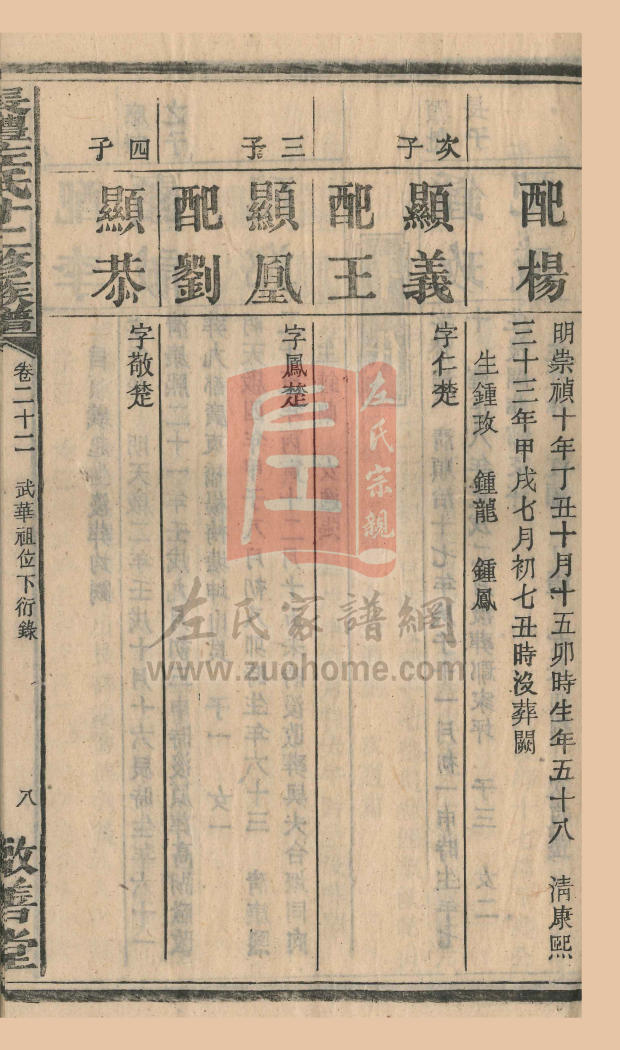 配楊
明崇禎十年丁丑十月十五卯時生年五十八 清康熙
三十三年甲戌七月初七丑時沒葬闕
生鍾玫 鍾龍 鍾鳳
次子
顯義
字仁楚
配王
三子
顯凰
字鳳楚
配劉
四子
顯恭
字敬楚
長醴左氏十二修族譜
卷二十二 武華祖位下衍錄
八
敬善堂
左氏宗親
左氏家譜網
www.zuohome.com